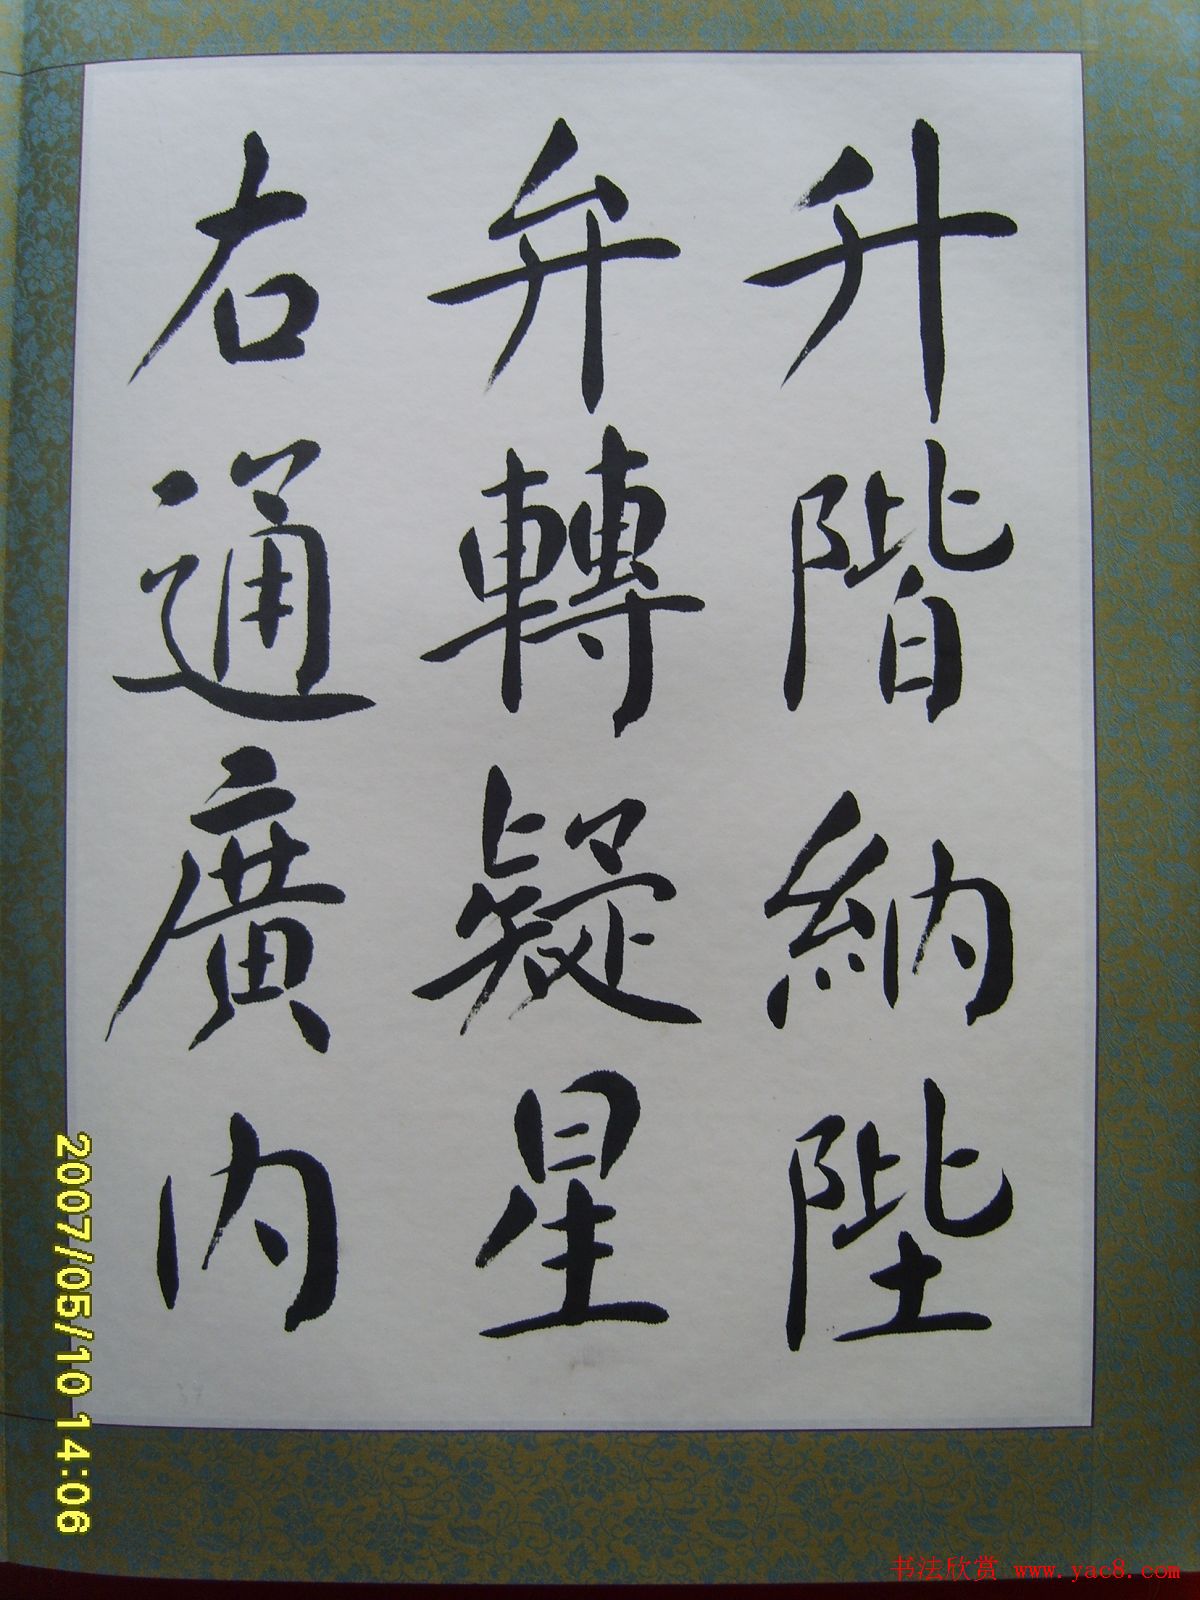 升階納陛
弁轉疑星
右通廣内
2007/05/10 14:06
书法欣赏 www.yac8.com